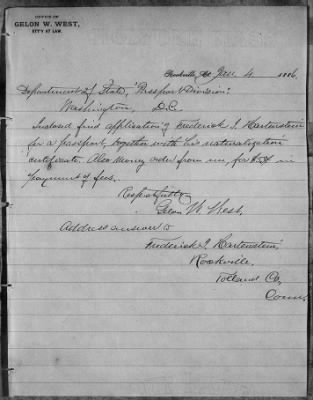 OFFICE OF
GELON W. WEST,
ATT'Y AT LAW.
Rockville, Ct. 4, 1886.
Department of State, "Passport Division".
Washington, D.C.
Inclosed find application of Frederick I. Hartenstein
for a passport, together with his naturalization
certificate. Also money order from me, for in
payment of fees.
Respectfully
Gelon W. West,
Address answer to
Frederick I. Hartenstein,
Rockville,
Tolland Co,
Conn.